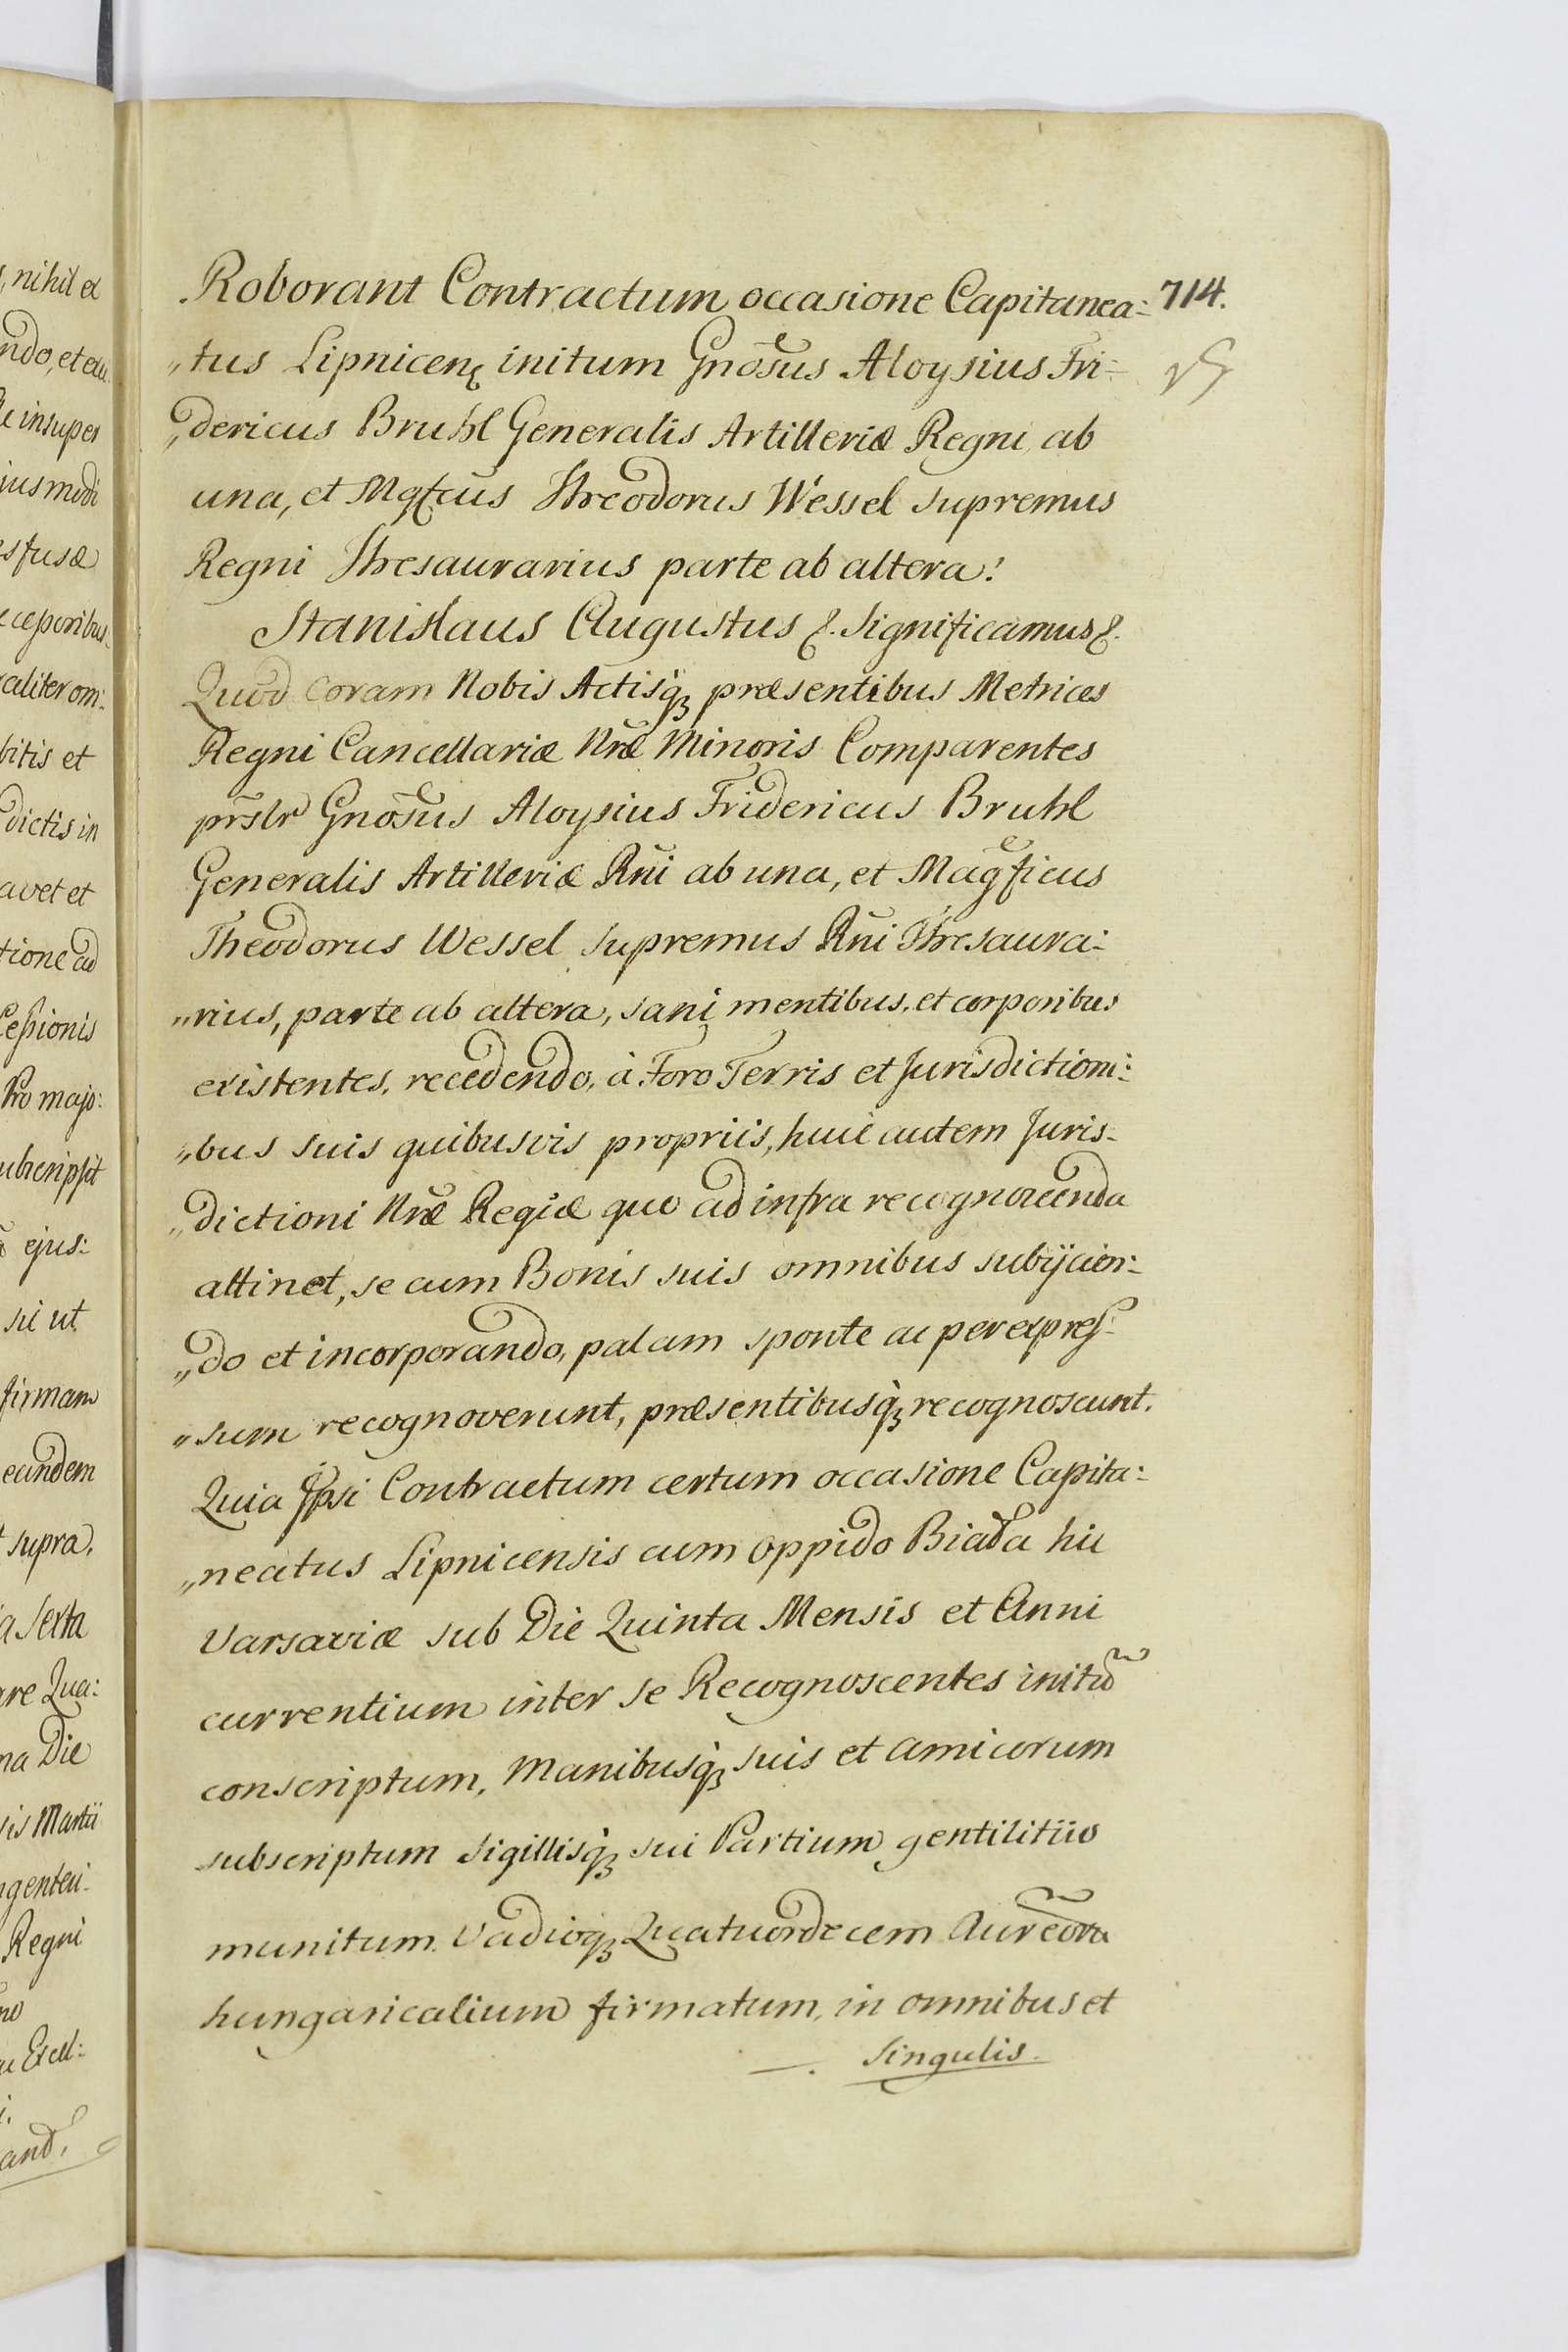 Roborant Contractum occasione Capitanea: 714.
„tus Lipnicen initum Gnosus Aloysius Fri-
„dericus Bruhl Generalis Artilleriæ Regni ab
una, et Mgfcus Theodorus Wessel supremus
Regni Thesaurarius parte ab altera!
Stanislaus Augustus &. Significamus &.
Quod coram Nobis Actisq; præsentibus Metrices
Regni Cancellariæ Nræ Minoris Comparentes
prslr Gnosus Aloysius Fridericus Bruhl
Generalis Artilleriæ Rni ab una, et Magficus
Theodorus Wessel supremus Rni Thesaura:
„rius, parte ab altera, sani mentibus, et corporibus
existentes, recedendo, à Foro Terris et Jurisdictioni:
„bus suis quibusvis propriis, huic autem Juris-
„dictioni Nræ Regiæ quo ad infra recognoscenda
attinet, se cum Bonis suis omnibus subijcien:
„do et incorporando, palam sponte ac per expres-
„sum recognoverunt, præsentibusq; recognoscunt.
Quia Ipsi Contractum certum occasione Capita:
„neatus Lipnicensis cum oppido Biała hic
Varsaviæ sub Die Quinta Mensis et Anni
currentium inter se Recognoscentes initũ
conscriptum, Manibusq; suis et amicorum
subscriptum Sigillisq; sui Partium gentilitiis
munitum. Vadioq; Quatuordecem Aureorũ
hungaricalium firmatum, in omnibus et
singulis.
nihil et
ndo, et
insuper
iusmodi
fusæ
aliter om:
bitis et
dictis in
avet et
tione ad
Cessionis
Pro majo:
ubscripsit
ejus:
sic ut
firmam
eandem
supra,
a Sexta
are Qua:
ma Die
sis Martii
ngentesi-
Regni